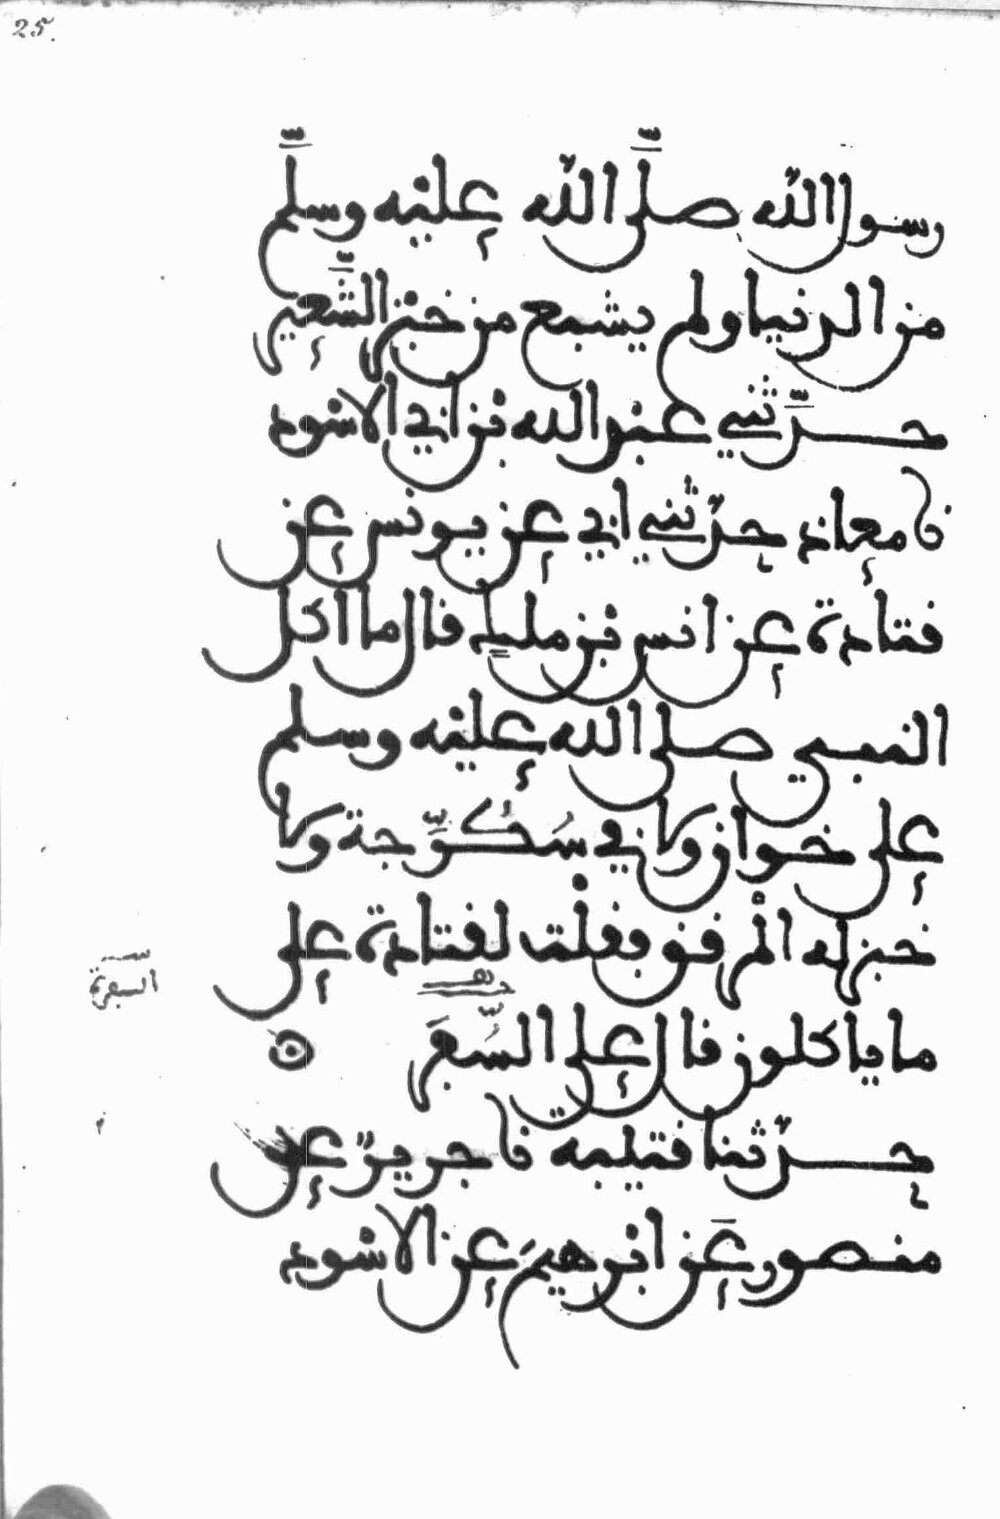 25.
رسول الله صلَّى الله عليه وسلَّم
من الدنيا ولم يشبع من خبز الشَّعير
حدَّثني عبد الله بن ابي الاسود
نا معاذ حدّثني ابي عن يونس عن
قتادة عن انس بن ملك قال ما اكل
النبي صلى الله عليه وسلم
على خوان ولا في سُكُرَّجة ولا
خبز له المرقق فقلت لقتادة على
السفرة
ما ياكلون قال على السُّفَر
حدّثنا قتيبة نا جريرٌ عن
منصور عن ابرهيم عن الاسود